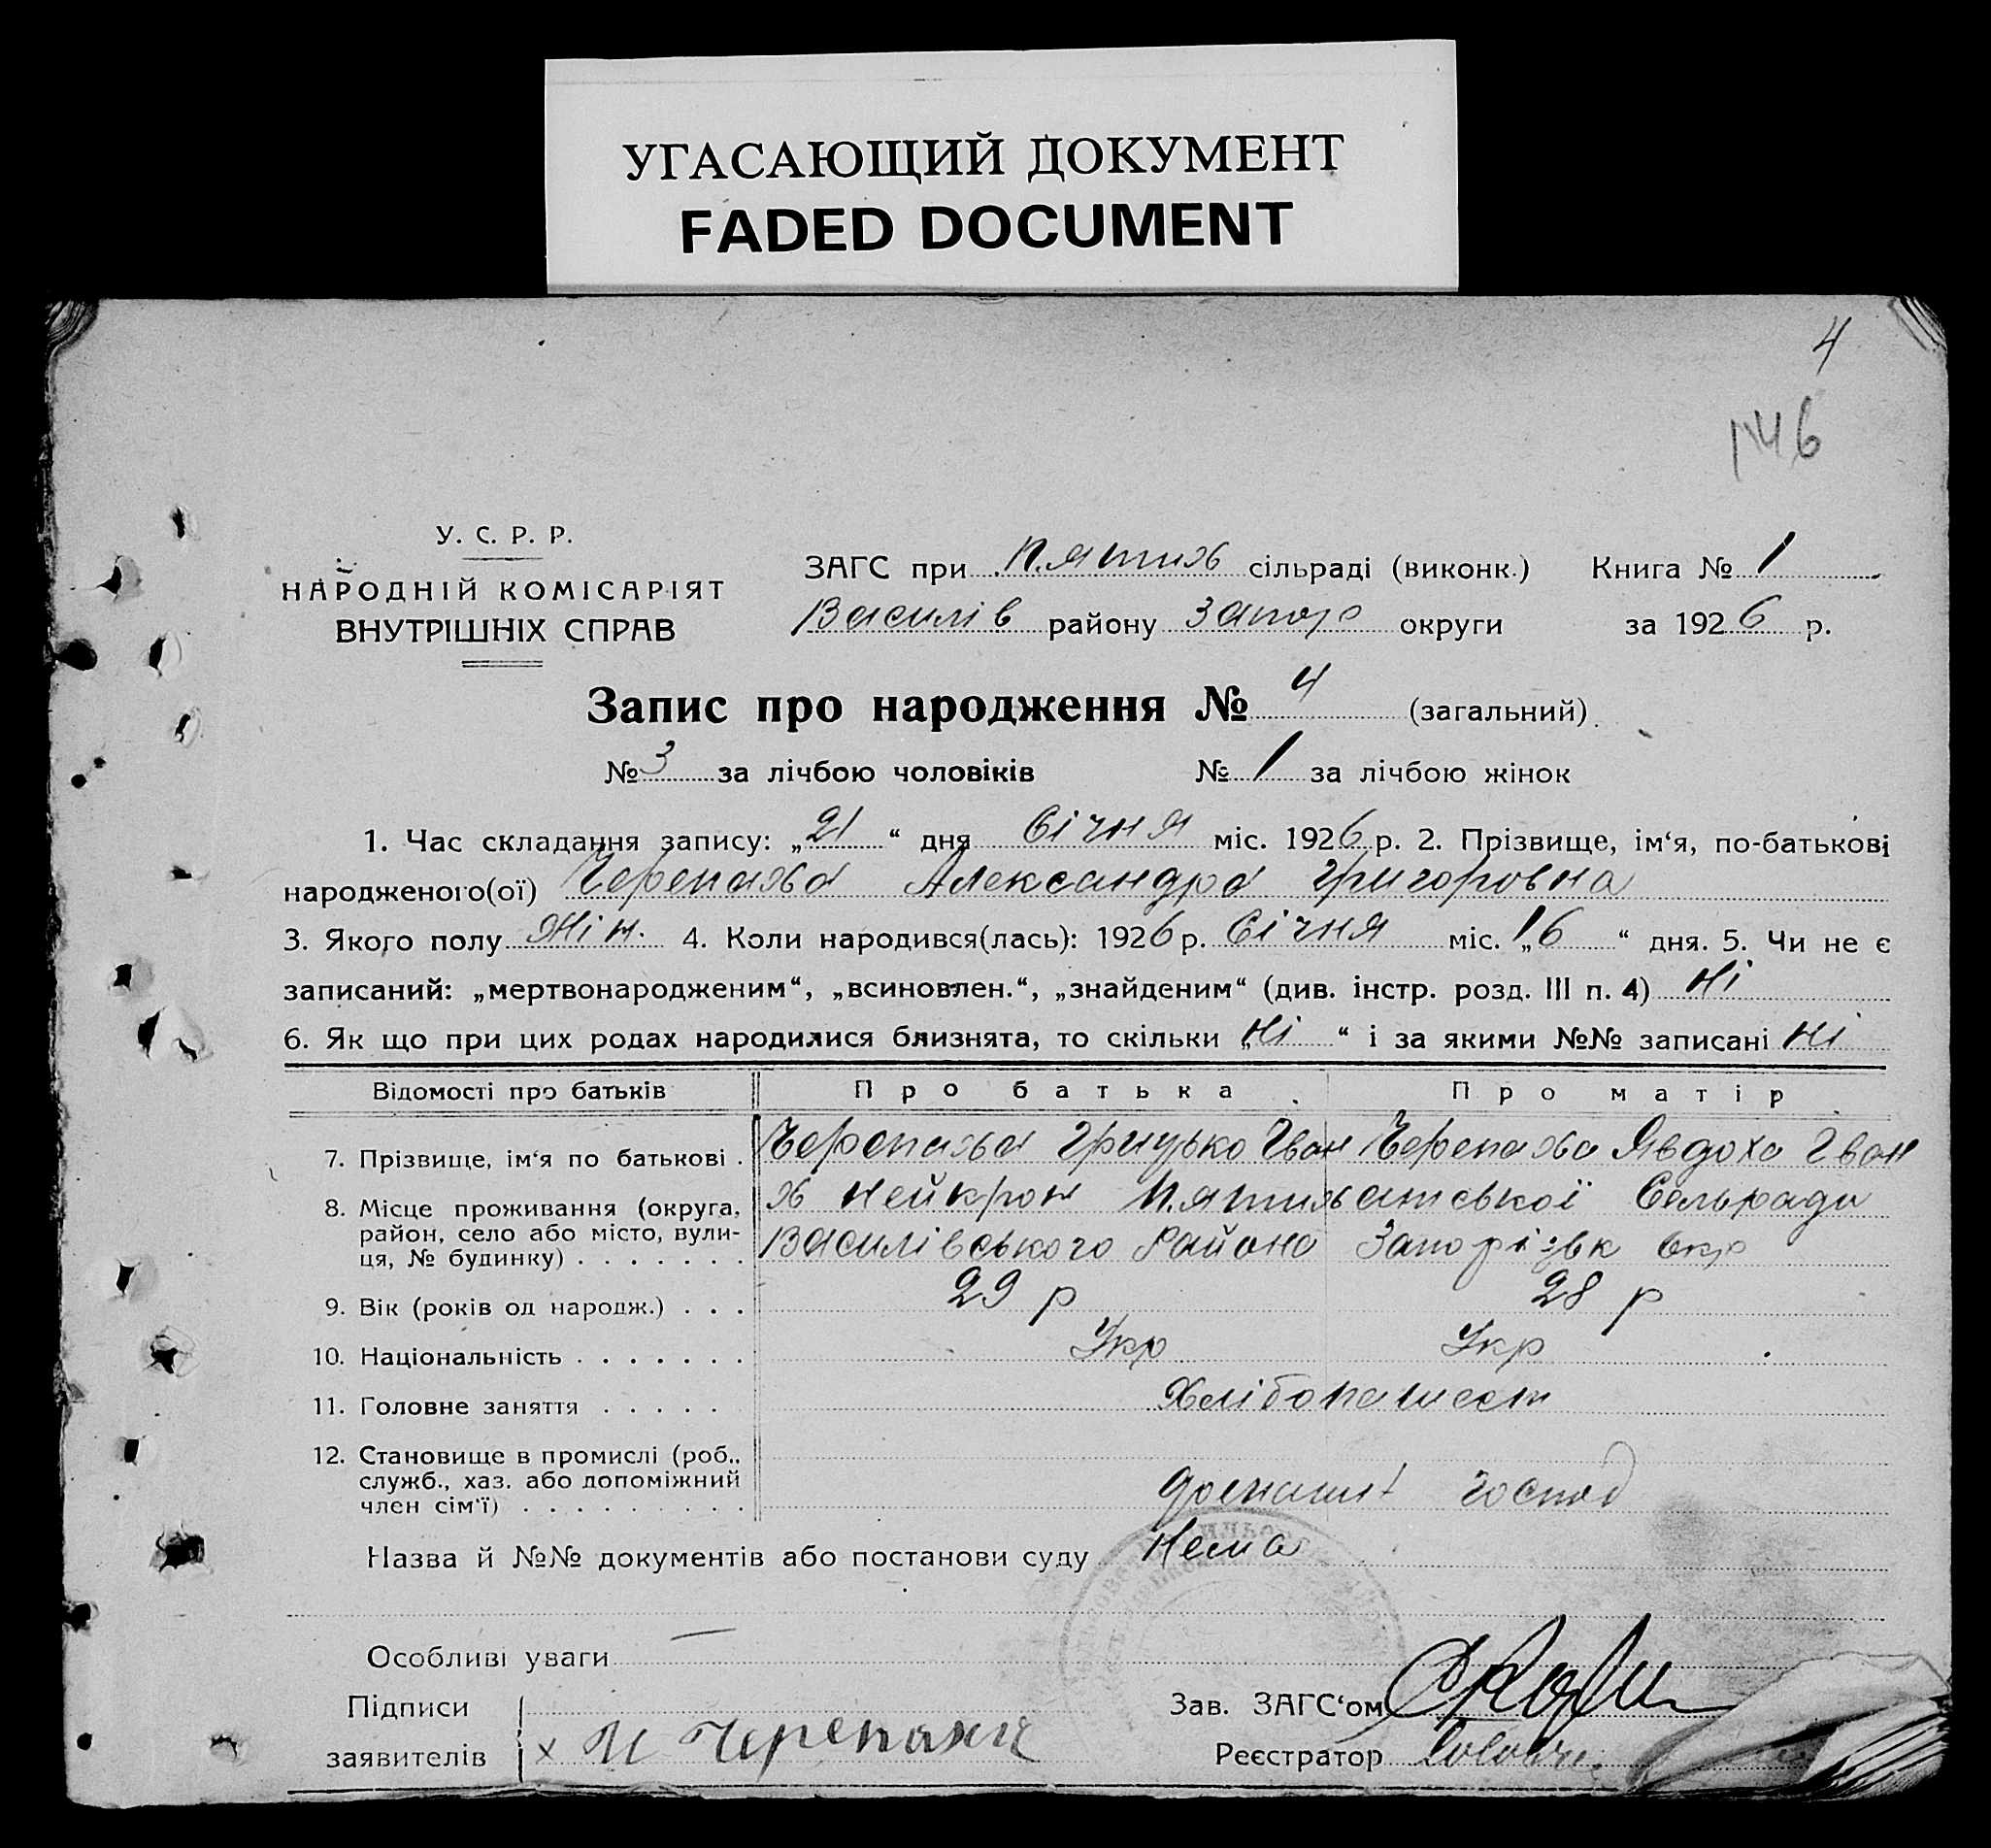 УГАСАЮЩИЙ ДОКУМЕНТ
FADED DOCUMENT
4
146
У. С. Р. Р.
НАРОДНІЙ КОМІСАРІЯТ
ВНУТРІШНІХ СПРАВ
ЗАГС при П.ятих сільраді (виконк.) Книга № 1
Василів району Запор округи за 1926 р.
Запис про народження № 4 (загальний)
№ 3 за лічбою чоловіків № 1 за лічбою жінок
1. Час складання запису: „21“ дня Січня міс. 1926 р. 2. Прізвище, ім‘я, по-батькові
народженого(ої) Черепаха Александра Григоровна
3. Якого полу Жін. 4. Коли народився(лась): 1926 р. Січня міс. „16“ дня. 5. Чи не є
записаний: „мертвонародженим“, „всиновлен.“, „знайденим“ (див. інстр. розд. III п. 4) Ні
6. Як що при цих родах народилися близнята, то скільки „Ні“ і за якими №№ записані Ні
Відомості про батьків Про батька Про матір
7. Прізвище, ім‘я по батькові . Черепаха Грицько Іван Черепаха Явдоха Іван
8. Місце проживання (округа, район, село або місто, вули-ця, № будинку) . . . . . . . х Нейкрон П.ятихатської Сельради
Василівського Района Запорізьк Окр
9. Вік (років од народж.) . . . 29 р 28 р
10. Національність . . . . . . . Укр Укр
11. Головне заняття . . . . . Хлібопашест
12. Становище в промислі (роб., служб., хаз. або допоміжний член сім‘ї) . . . . . . . . . господ
Назва й №№ документів або постанови суду Нема
Особливі уваги —
Підписи Зав. ЗАГС‘ом
заявителів х Черепаха Реєстратор